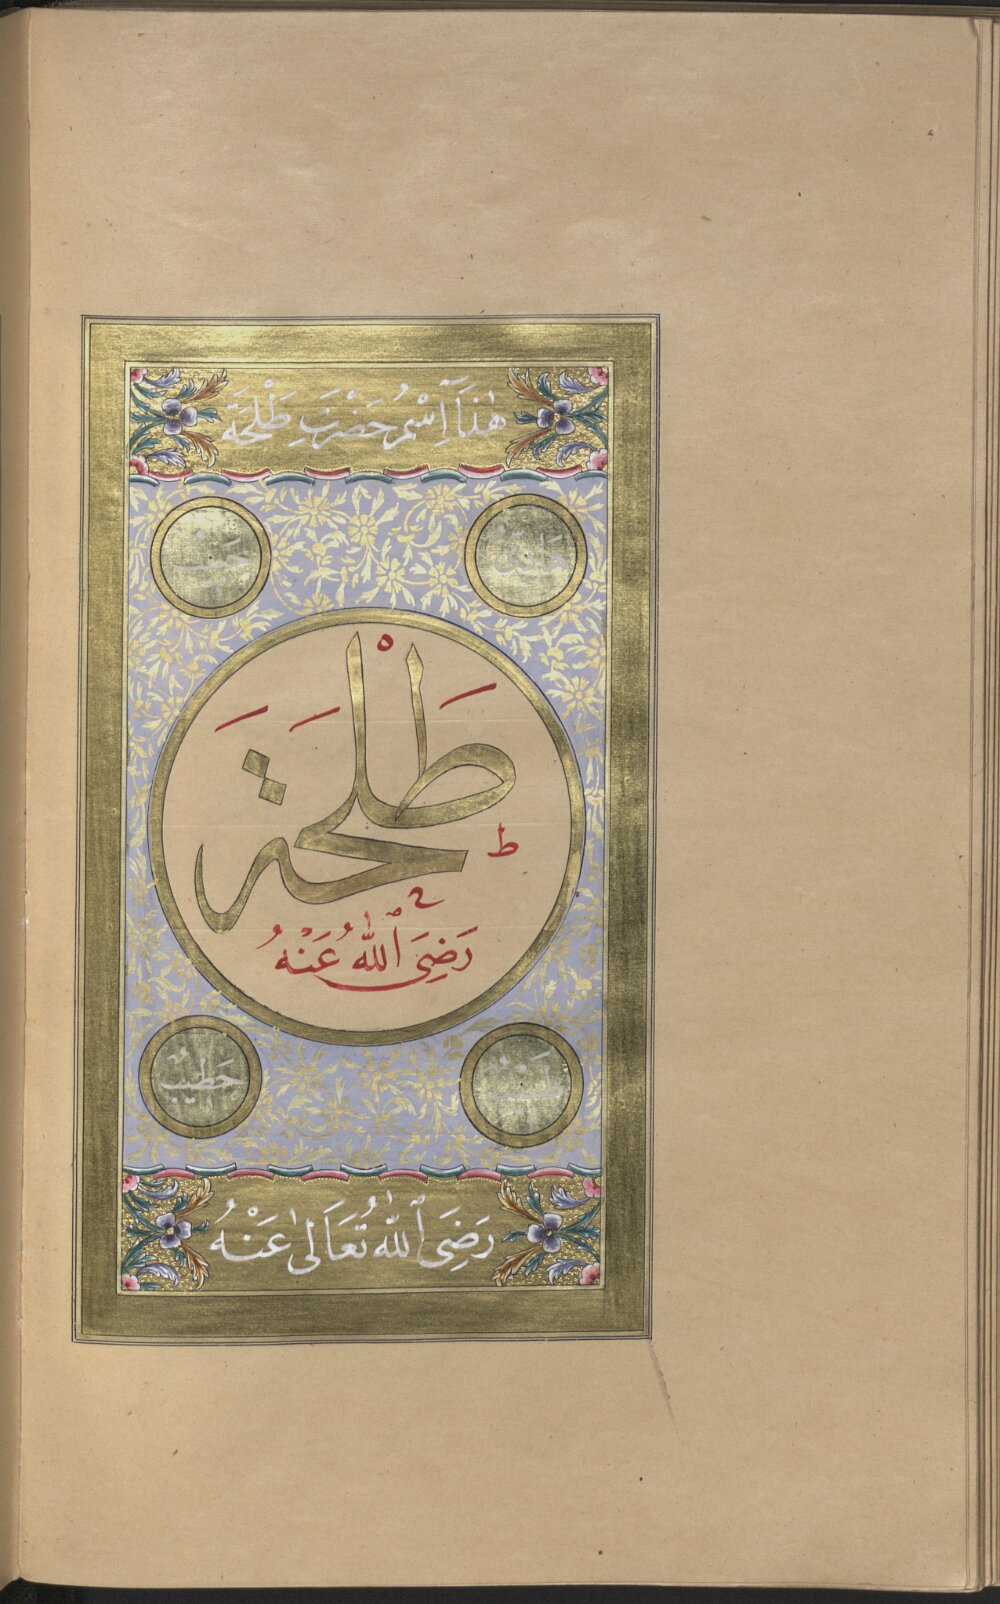 هٰذَا اِسْمُ حَضْرَتِ طَلْحَةَ
طَلْحَةَ
ط
ح
رَضِىَ ٱللّٰهُ عَنْهُ
خَطِيبٌ
رَضِىَ ٱللّٰهُ تَعَالٰى عَنْهُ